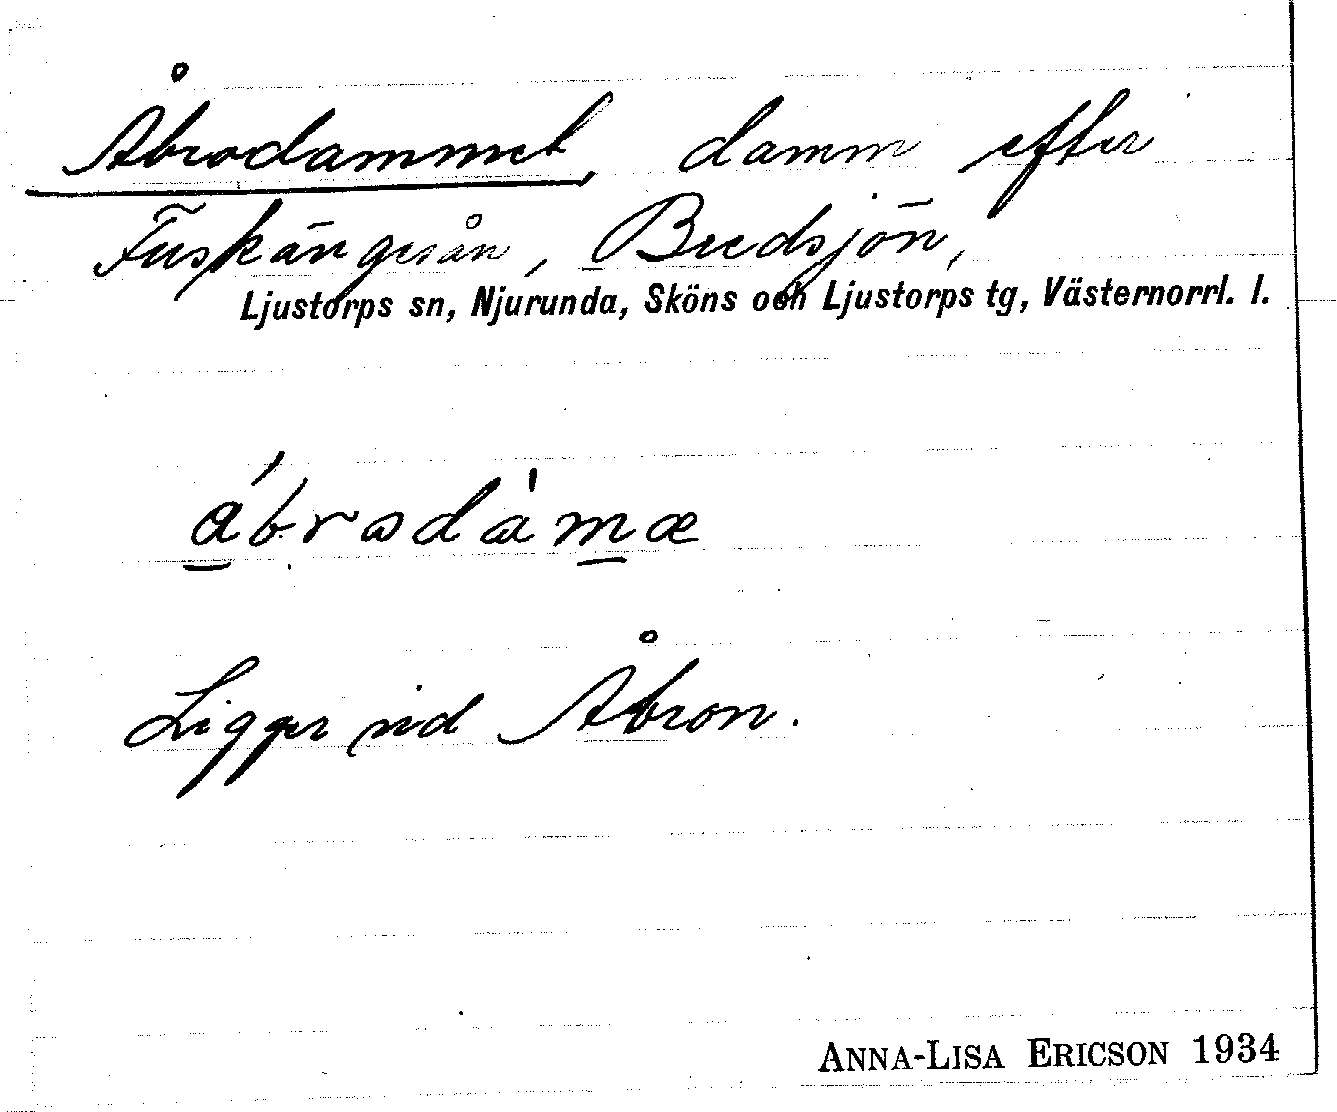 Åbrodammet, damm efter
Fuskängesån, Bredsjön,
Ljustorps sn, Njurunda, Sköns och Ljustorps tg, Västernorrl. l.
Ligger vid Åbron.
ANNA-LISA ERICSON 1934